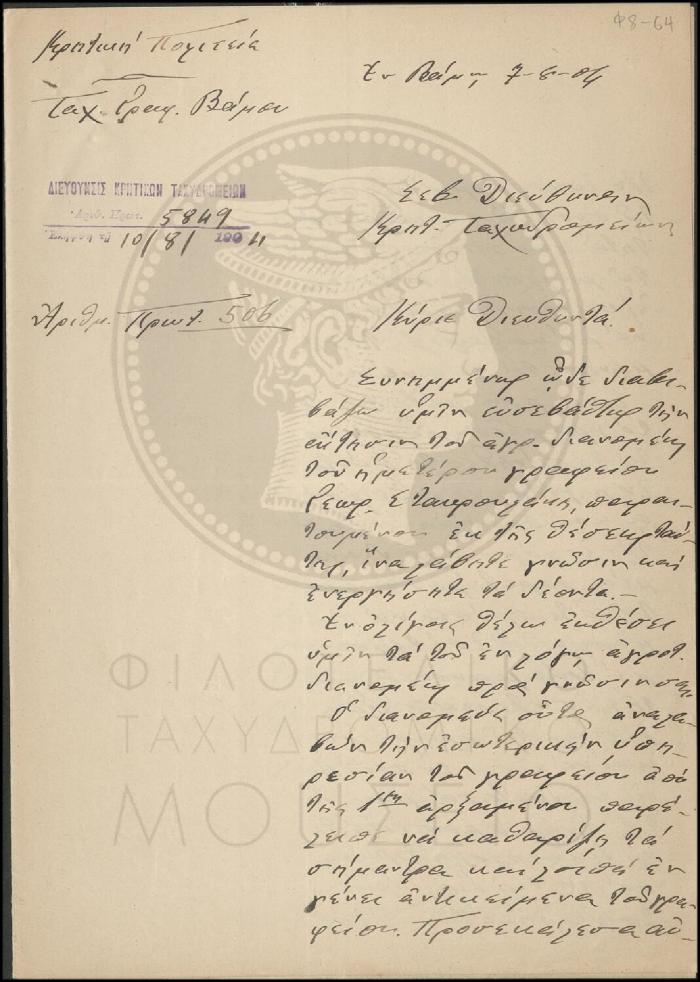 Φ8-64
Κρητική Πολιτεία
Ἐν Βάμῳ 7-8-04
Ταχ. Γραφ. Βάμου
ΔΙΕΥΘΥΝΣΙΣ ΚΡΗΤΙΚΩΝ ΤΑΧΥΔΡΟΜΕΙΩΝ
Ἀριθ. Πρωτ. 5849
10/8/1904
Σεβ. Διεύθυνσιν
Κρητ. Ταχυδρομείων
Ἀριθμ. Πρωτ. 506
Κύριε Διευθυντά.
Συνημμένως ὧδε διαβι-
βάζω ὑμῖν εὐσεβάστως τὴν
αἴτησιν τοῦ ἀγρ. διανομέως
τοῦ ἡμετέρου γραφείου
Γεωρ. Σταυρουλάκη, παραι-
τουμένου ἐκ τῆς θέσεως ταύ-
της, ἵνα λάβητε γνῶσιν καὶ
ἐνεργήσητε τὰ δέοντα.—
Ἐν ὀλίγοις θέλω ἐκθέσει
ὑμῖν τὰ τοῦ ἐν λόγῳ ἀγροτ.
διανομέως πρὸς γνῶσιν σας.
Ὁ διανομεὺς οὗτος ἀναλα-
βὼν τὴν ἐσωτερικὴν ὑπη-
ρεσίαν τοῦ γραφείου ἀπὸ
τῆς 1ης ἀρξαμένου παρέ-
λειπε νὰ καθαρίζῃ τὰ
σήμαντρα καὶ λοιπὰ ἐν
γένει ἀντικείμενα τοῦ γρα-
φείου. Προσεκάλεσα αὐ-
ΦΙΛΟΤΕΛΙΚΟ
ΤΑΧΥΔΡΟΜΙΚΟ
ΜΟΥΣΕΙΟ